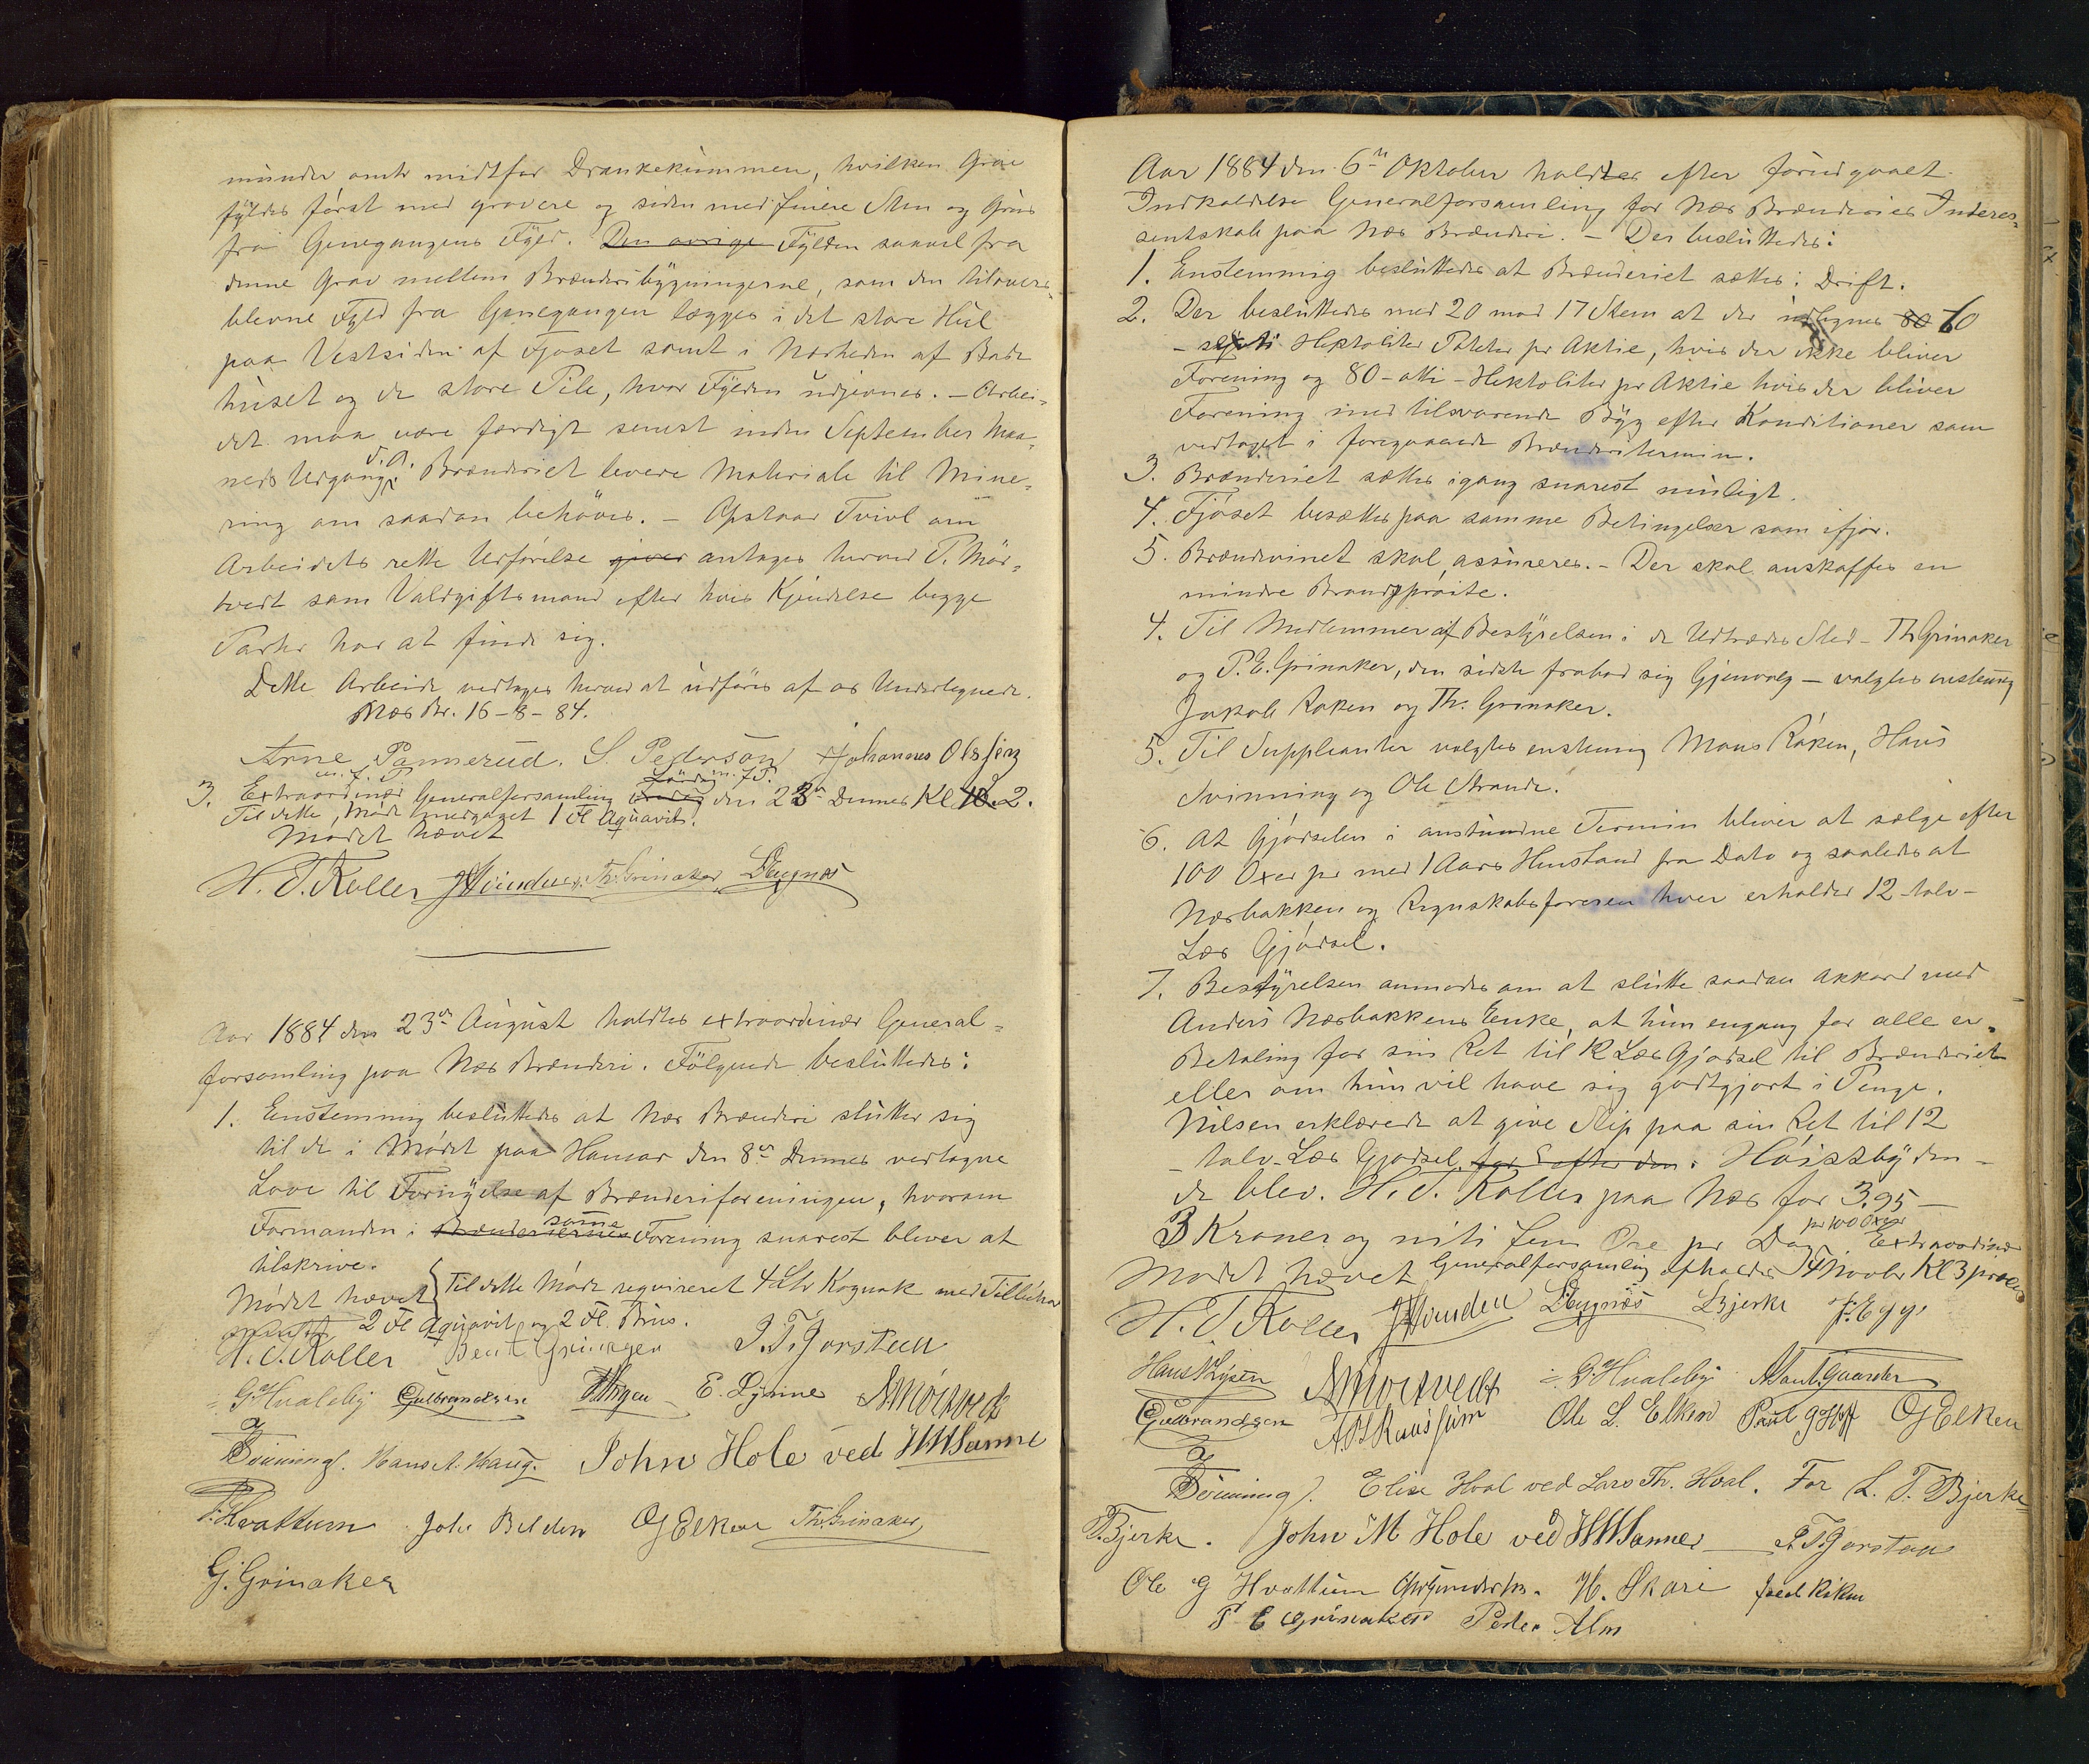 munder omtr midtfor Drankekummen, hvilken Grav
fyldes først med grovere og siden med finere Sten og Grus
fra Genegangens Fyld. Den øvrige Fylden saavel fra
denne Grav mellem Brænderibygningerne, som den tilovers-
blevne Fyld fra Genegangen lægges i det store Hul
paa Vestsiden af Fjøset samt i Nærheden af Bade
huset og de store Pile, hvor Fylden udjevnes. – Arbei-
det maa være færdigt senest inden September Maa-
neds Udgang d.A. Brænderiet levere Materiale til Mine-
ring om saadan behøves. – Opstaar Tvivl om
Arbeidets rette Udførelse giver antages herved P. Mør-
tvedt som Voldgiftsmand efter hvis Kjendelse begge
Parter har at finde sig.
Dette Arbeide vedtages herved at udføres af os Undertegnede.
Næs Br. 16-8-84.
Arne Pannerud. S. Pederson Johannes Olssen
m. f. P. m. f. P.
3. Extraordinær Generalforsamling Lørdag den 23de Dennes Kl 10. 2.
Til dette Møde medgaaet 1 Fl Aquavit.
Mødet hævet
H. T. Koller Th. Grinaker
Aar 1884 den 23de August holdtes extraordinær General-
forsamling paa Næs Brænderi. Følgende besluttedes:
1. Enstemmig besluttedes at Næs Brænderi slutter sig
til de i Mødet paa Hamar den 8de Dennes vedtagne
Love til Fornyelse af Brænderiforeningen, hvorom
Formanden i samme Forening snarest bliver at
tilskrive.
Mødet hævet Til dette Møde reqvireret 4 Ltr Kognak med Tilbehør
2 Fl Aquavit og 2 Fl. Brus.
H. T. Koller Bent Grinager P. T. Gjorsteen
G. Hvaleby Gulbrandsen E. Lynine A Mörtvedt
Hans A. Haug. John Hole ved HH Sanne
Hvattum Joh. Belden OJ Elken Th. Grinaker
G. Grinaker
Aar 1884 den 6te Oktober holdtes efter forudgaaet
Indkaldelse Generalforsamling for Næs Brænderies Interes-
sentskab paa Næs Brænderi. – Der besluttedes:
1. Enstemmig besluttedes at Brænderiet sættes i Drift.
2. Der besluttedes med 20 mod 17 Stem at der udlignes 80 60
– sexti Hektoliter Poteter pr Aktie, hvis der ikke bliver
Forening og 80 – otti – Hektoliter pr Aktie hvis der bliver
Forening med tilsvarende Byg efter Konditioner som
vedtaget i foregaaende Brænderitermin.
3. Brænderiet sættes igang snarest muligt.
4. Fjøset besættes paa samme Betingelser som ifjor.
5. Brændevinet skal assureres. – Der skal anskaffes en
mindre Brandsprøite.
4. Til Medlemmer af Bestyrelsen i de Udtrædes Sted – Th Grinaker
og P. E. Grinaker, den sidste frabad sig Gjenvalg – valgtes enstemmig
Jakob Røken og Th. Grinaker.
5. Til Suppleanter valgtes enstemmig Mons Røken, Hans
Svinning og Ole Strande.
6. At Gjødselen i anstundne Termin bliver at sælge efter
100 Oxer pr med 1 Aars Henstand fra Dato og saaledes at
Næsbakken og Regnskabsføreren hver erholder 12 – tolv –
Læs Gjødsel.
7. Bestyrelsen anmodes om at slutte saadan Akkord med
Anders Næsbakkens Enke, at hun engang for alle er-
Betaling for sin Ret til 12 Læs Gjødsel til Brænderiet
eller om hun vil have sig godtgjort i Penge.
Nilsen erklærede at give Slip paa sin Ret til 12
– tolv – Læs Gjødsel. for efter den. Høistbyden-
de blev H. T. Koller paa Næs for 3,95 –
3 Kroner og niti fem Øre pr Dag pr 100 Oxer Extraordinær
Mødet hævet Generalforsamling afholdes 14 Novbr Kl 3 præcis
H. T. Koller L Bjerke P. Egge
Hans Rysen A Mörtvedt G. Hvaleby
Gulbrandsen Ole L. Elken Paul G Hoff OJ Elken
Elise Hval ved Lars Th. Hval. For L. T. Bjerke
T. Bjerke. John M Hole ved HH Sanne P. T. Gjorsteen
Ole G Hvattum H. Skari
P E Grinaker Peder Alm